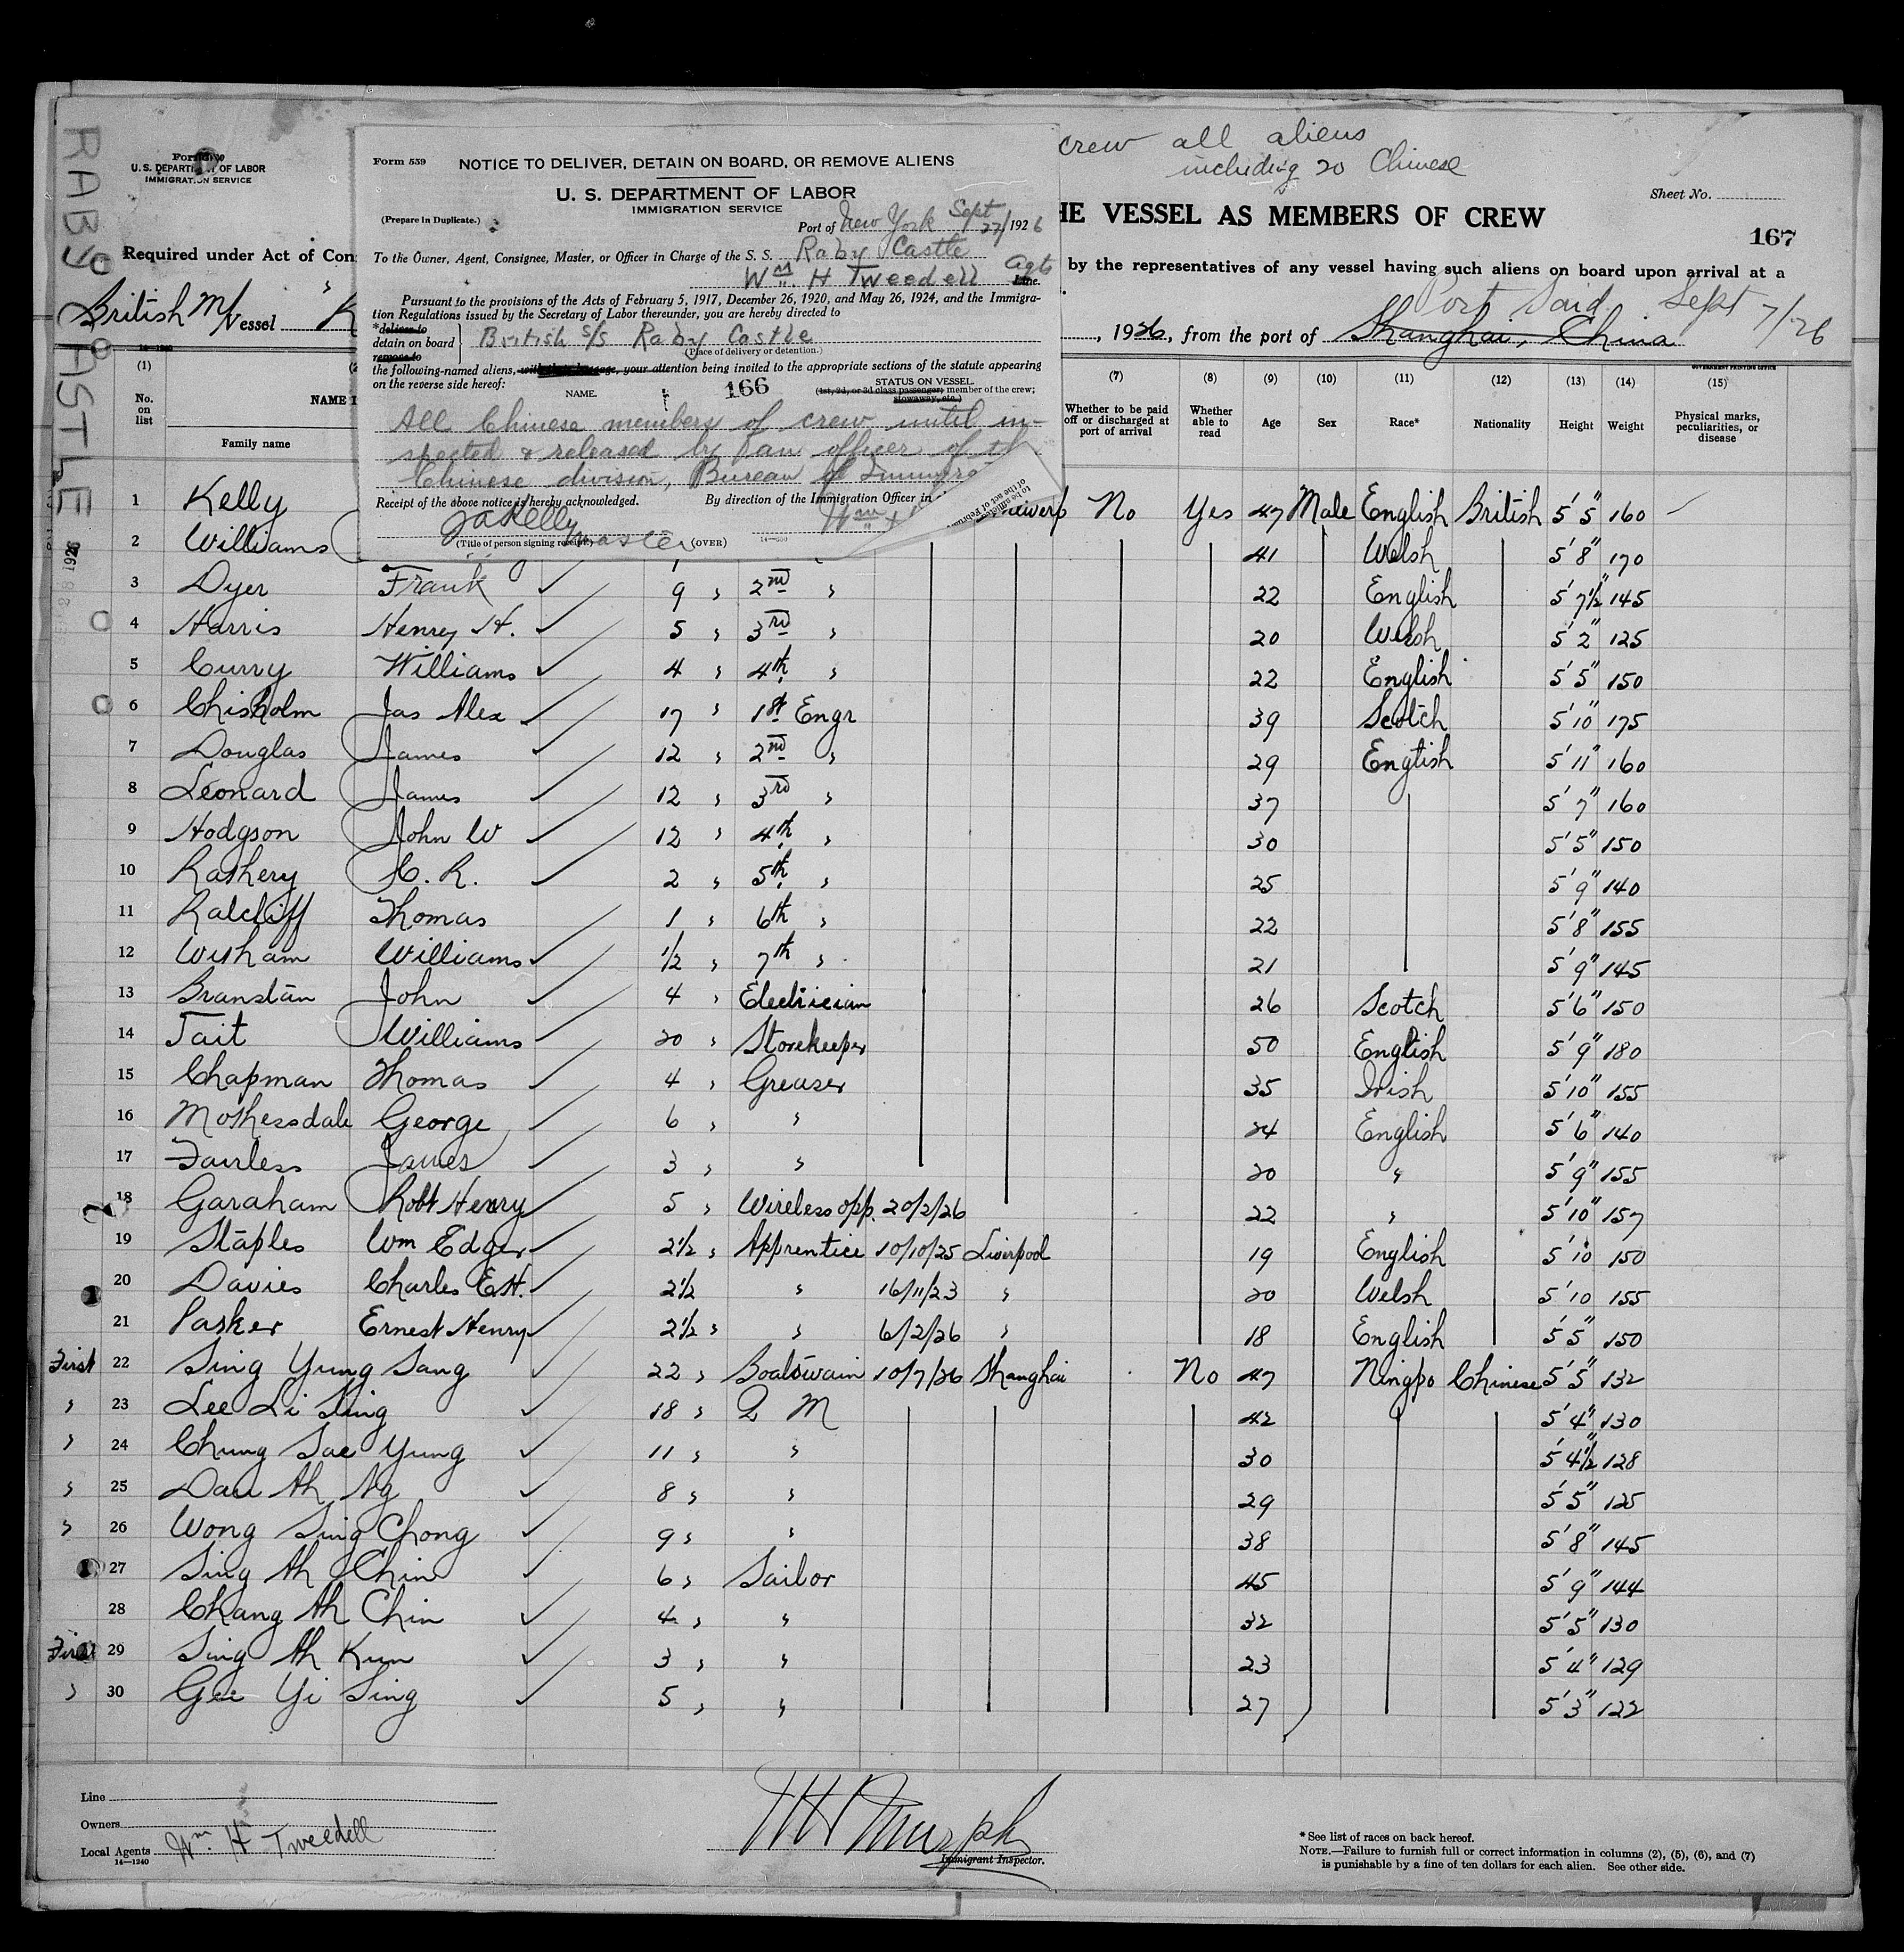 crew all aliens
including 20 Chinese
Sheet No.
HE VESSEL AS MEMBERS OF CREW
167
RABY CASTLE
U. S. DEPARTMENT OF LABOR
IMMIGRATION SERVICE
Required under Act of Con
by the representatives of any vessel having such aliens on board upon arrival at a
Port Said Sept 7/26
British M/Vessel
, 1926, from the port of Shanghai, China
Form 559
NOTICE TO DELIVER, DETAIN ON BOARD, OR REMOVE ALIENS
U. S. DEPARTMENT OF LABOR
IMMIGRATION SERVICE
(Prepare in Duplicate.)
Port of New York Sept 27/ 1926
To the Owner, Agent, Consignee, Master, or Officer in Charge of the S. S. Raby Castle
Wm. H Tweedell Agts Line.
Pursuant to the provisions of the Acts of February 5, 1917, December 26, 1920, and May 26, 1924, and the Immigra-
tion Regulations issued by the Secretary of Labor thereunder, you are hereby directed to
*deliver to
detain on board
remove to
British S/S Raby Castle
(Place of delivery or detention.)
the following-named aliens, with their baggage, your attention being invited to the appropriate sections of the statute appearing
on the reverse side hereof:
NAME.
166
STATUS ON VESSEL.
(1st, 2d, or 3d class passenger; member of the crew;
stowaway, etc.)
All Chinese members of crew until in-
spected & released by an officer of th
Chinese division, Bureau of Immigra
Receipt of the above notice is hereby acknowledged.
By direction of the Immigration Officer in
JA Kelly
Master
(Title of person signing receipt.)
(OVER)
14—1240
GOVERNMENT PRINTING OFFICE
(1) (7) (8) (9) (10) (11) (12) (13) (14) (15)
No. on list
NAME I
Family name
Whether to be paid off or discharged at port of arrival
Whether able to read
Age
Sex
Race*
Nationality
Height
Weight
Physical marks, peculiarities, or disease
1 Kelly No Yes 47 Male English British 5' 5" 160
2 Williams 41 Welsh 5' 8" 170
3 Dyer Frank 9 " 2nd " 22 English 5' 7½" 145
4 Harris Henry H. 5 " 3rd " 20 Welsh 5' 2" 125
5 Curry Williams 4 " 4th " 22 English 5' 5" 150
6 Chisholm Jas Alex 17 " 1st Engr 39 Scotch 5' 10" 175
7 Douglas James 12 " 2nd " 29 English 5' 11" 160
8 Leonard James 12 " 3rd " 37 5' 7" 160
9 Hodgson John W 12 " 4th " 30 5' 5" 150
10 Rathery C. R. 2 " 5th " 25 5' 9" 140
11 Ratcliff Thomas 1 " 6th " 22 5' 8" 155
12 Witham Williams 1/2 " 7th " 21 5' 9" 145
13 Branstan John 4 " Electrician 26 Scotch 5' 6" 150
14 Tait Williams 20 " Storekeeper 50 English 5' 9" 180
15 Chapman Thomas 4 " Greaser 35 Irish 5' 10" 155
16 Mothersdale George 6 " " 24 English 5' 6" 140
17 Fairless James 3 " " 20 " 5' 9" 155
18 Garaham Robt Henry 5 " Wireless opp. 20/2/26 22 " 5' 10" 157
19 Staples Wm Edger 2½ " Apprentice 10/10/25 Liverpool 19 English 5' 10 150
20 Davies Charles E.H. 2½ " 16/11/23 " 20 Welsh 5' 10 155
21 Parker Ernest Henry 2½ " " 6/2/26 " 18 English 5' 5" 150
First 22 Sing Yung Sang 22 " Boatswain 10/7/26 Shanghai No 47 Ningpo Chinese 5' 5" 132
" 23 Lee Li Sing 18 " Q M 42 5' 4" 130
" 24 Chung Sae Yung 11 " " 30 5' 4½" 128
" 25 Dau Ah Ng 8 " " 29 5' 5" 125
" 26 Wong Sing Chong 9 " " 38 5' 8" 145
27 Sing Ah Chin 6 " Sailor 45 5' 9" 144
28 Chang Ah Chin 4 " " 32 5' 5" 130
First 29 Sing Ah Kun 3 " " 23 5' 4" 129
" 30 Gee Yi Sing 5 " " 27 5' 3" 122
Line
Owners
Local Agents Wm. H Tweedell
14—1240
Immigrant Inspector.
* See list of races on back hereof.
NOTE.—Failure to furnish full or correct information in columns (2), (5), (6), and (7)
is punishable by a fine of ten dollars for each alien. See other side.